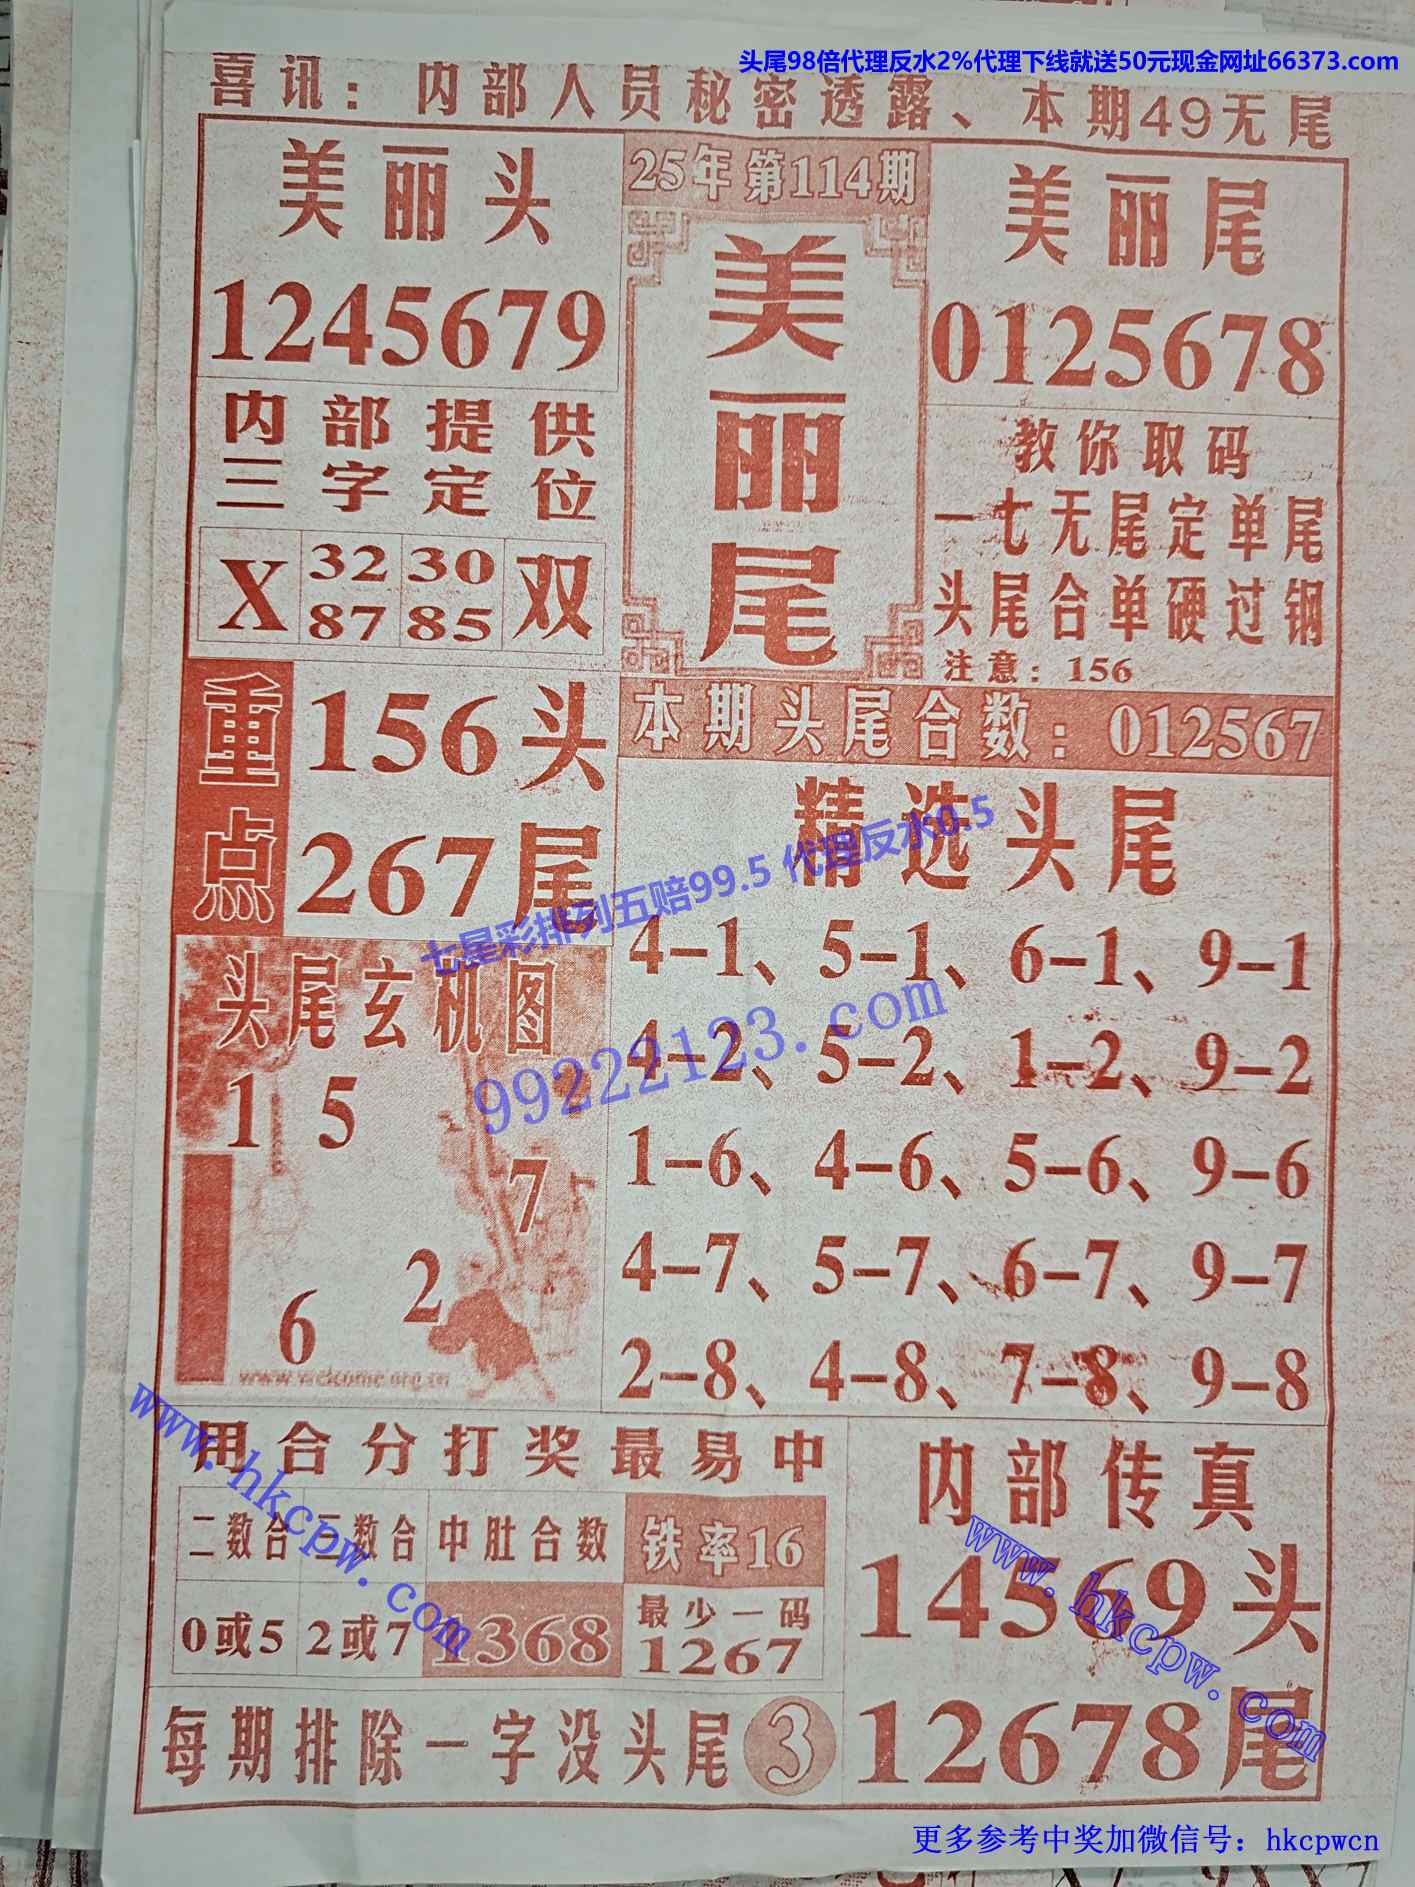 头尾98倍代理反水2%代理下线就送50元现金网址66373.com
喜讯：内部人员秘密透露、本期49无尾
美丽头
1245679
25年第114期
美丽尾
美丽尾
0125678
内部提供
三字定位
X
32
87
30
85
双
教你取码
一七无尾定单尾
头尾合单硬过钢
注意：156
重点
156头
267尾
本期头尾合数：012567
精选头尾
4-1、5-1、6-1、9-1
4-2、5-2、1-2、9-2
1-6、4-6、5-6、9-6
4-7、5-7、6-7、9-7
2-8、4-8、7-8、9-8
七星彩排列五赔99.5 代理反水0.5
99222123.com
头尾玄机图
1 5 2
7
2
6
www.hkcpw.com
用合分打奖最易中
二数合 三数合 中肚合数 铁率16
0或5 2或7 1368
最少一码
1267
内部传真
14569头
12678尾
www.hkcpw.com
每期排除一字没头尾③
更多参考中奖加微信号：hkcpwcn